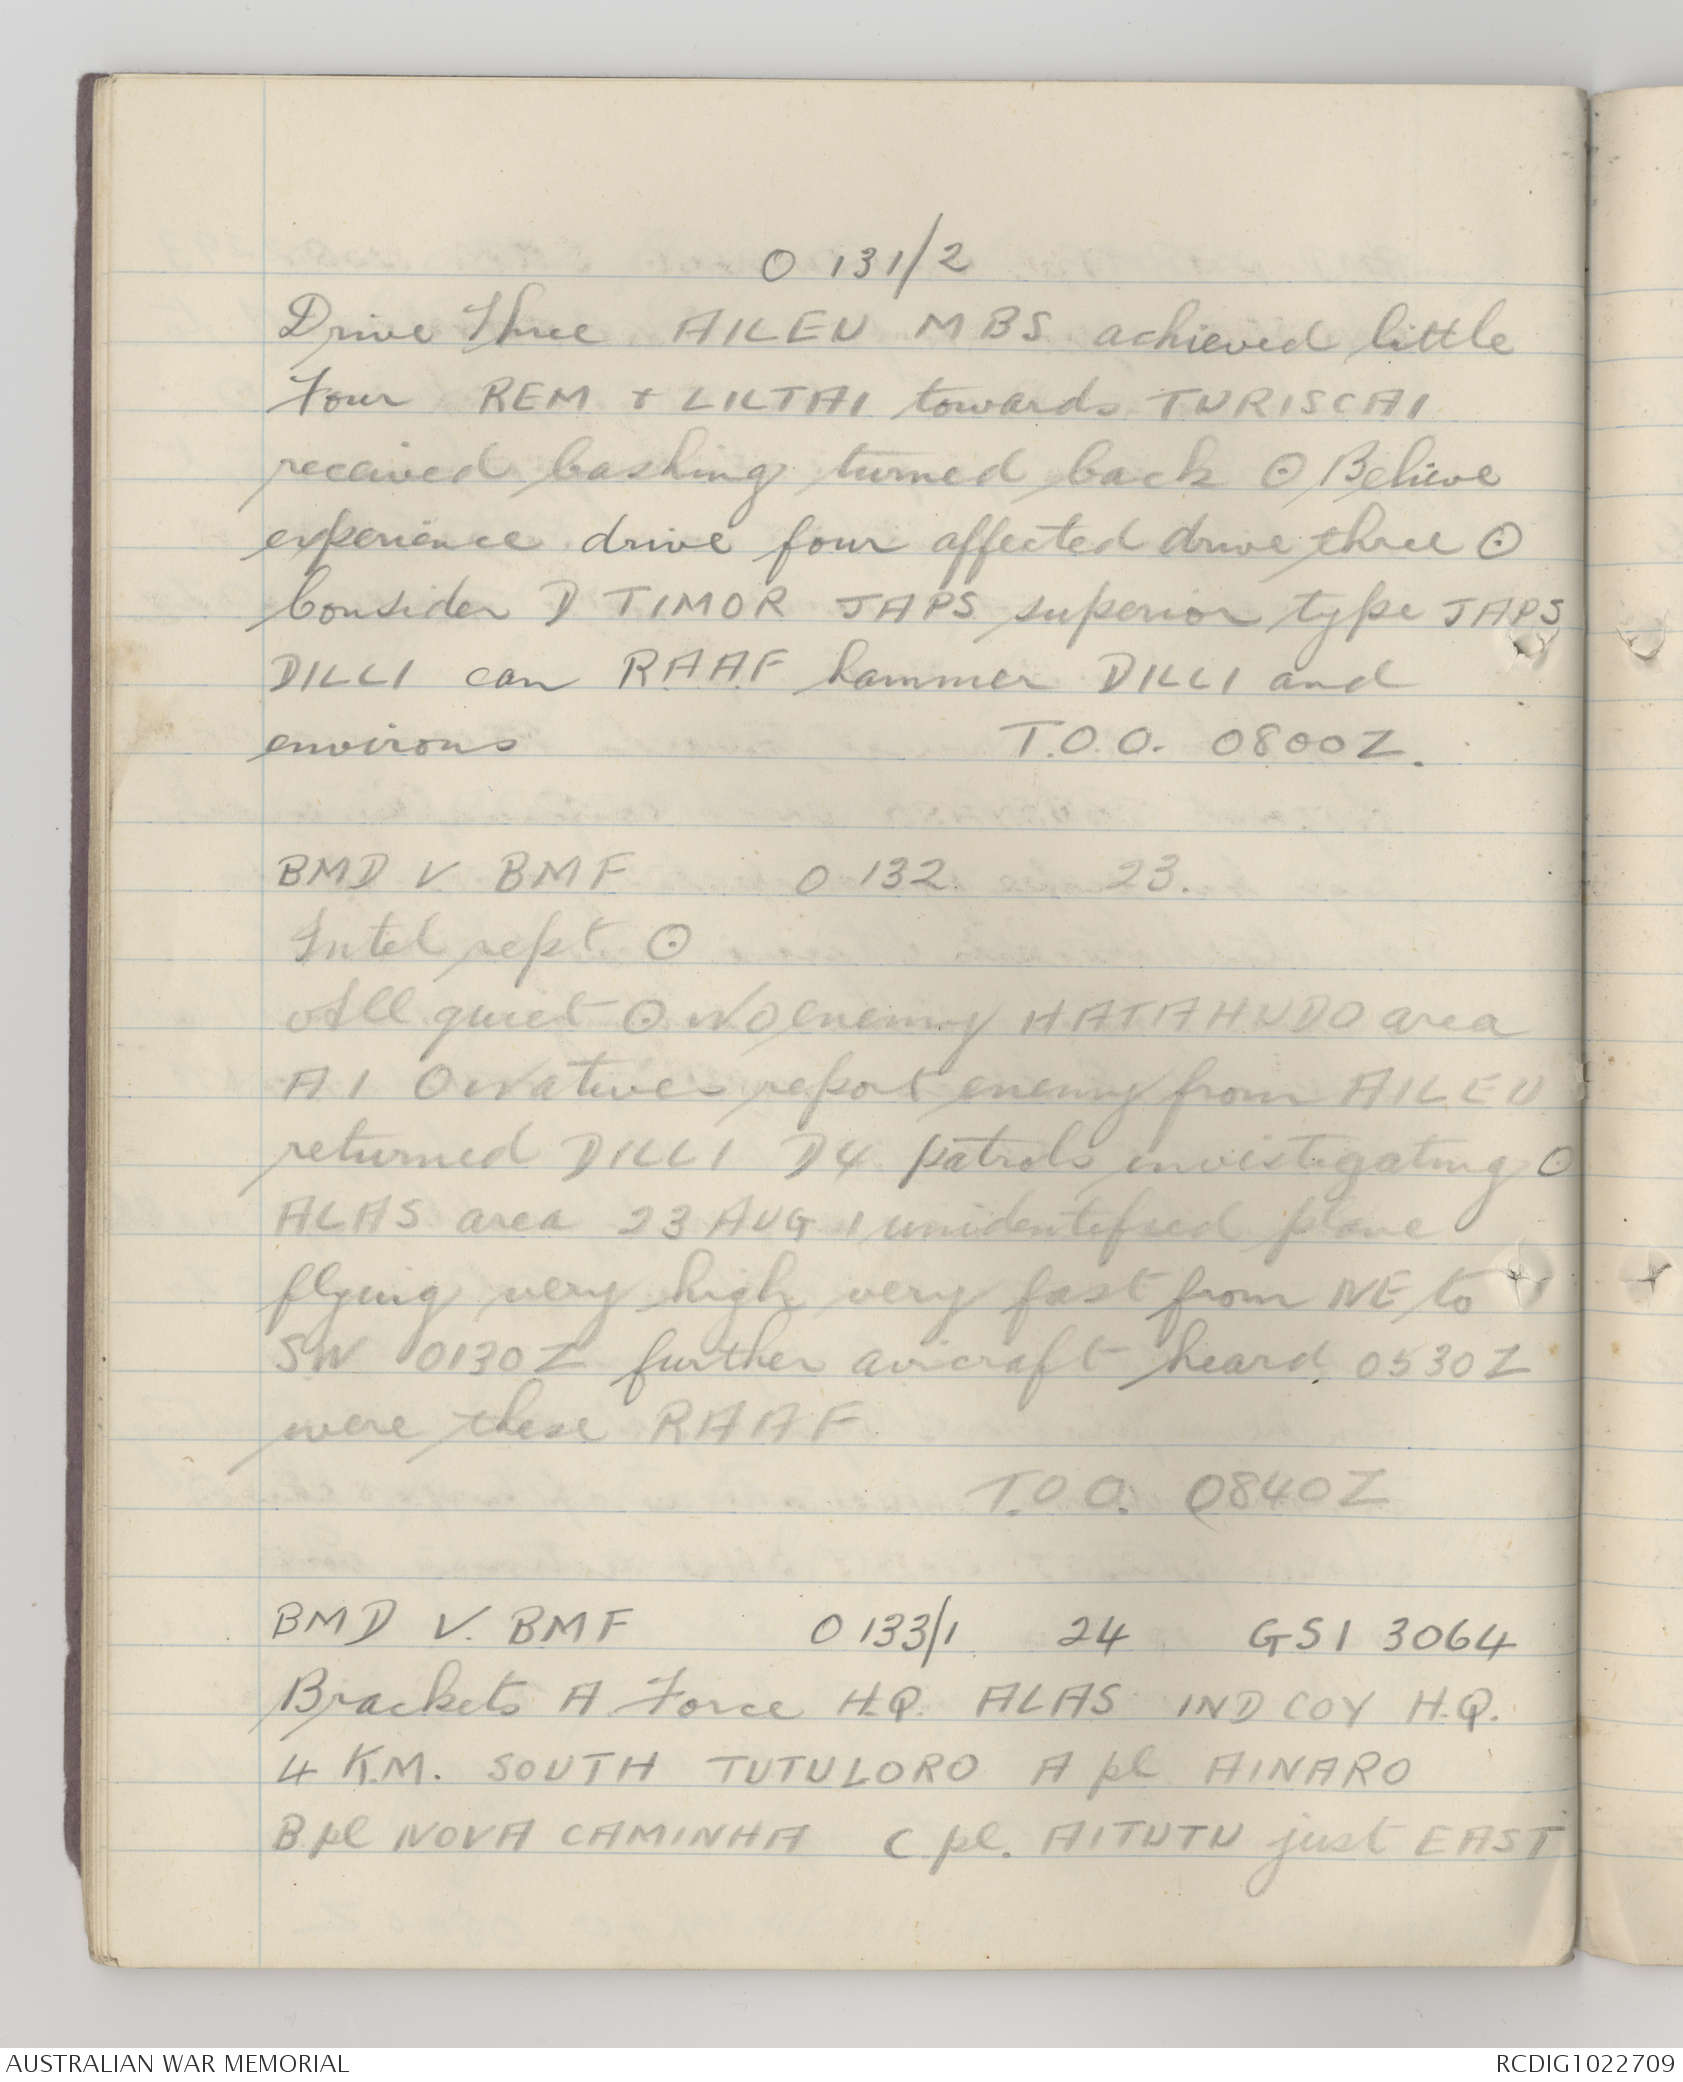 O 131/2
Drive three AILEU MBS achieved little
Four REM + LILTAI towards TURISCAI
received bashing turned back ⊙ Believe
experience drive four affected drive three ⊙
Consider D TIMOR JAPS superior type JAPS
DILLI can RAAF hammer DILLI and
environs T.O.O. 0800Z.
BMD V BMF O 132 23.
Intel rept. ⊙
All quiet ⊙ NO enemy HATAHUDO area
A1 ⊙ Natives report enemy from AILEU
returned DILLI D4 patrols investigating ⊙
ALAS area 23 AUG 1 unidentified plane
flying very high very fast from NE to
SW 0130Z further aircraft heard 0530Z
were these RAAF
T.O.O. 0840Z
BMD V. BMF O 133/1 24 GSI 3064
Brackets A Force H.Q. ALAS IND COY H.Q.
4 K.M. SOUTH TUTULORO A pl AINARO
B pl NOVA CAMINHA C pl. AITUTU just EAST
AUSTRALIAN WAR MEMORIAL RCDIG1022709